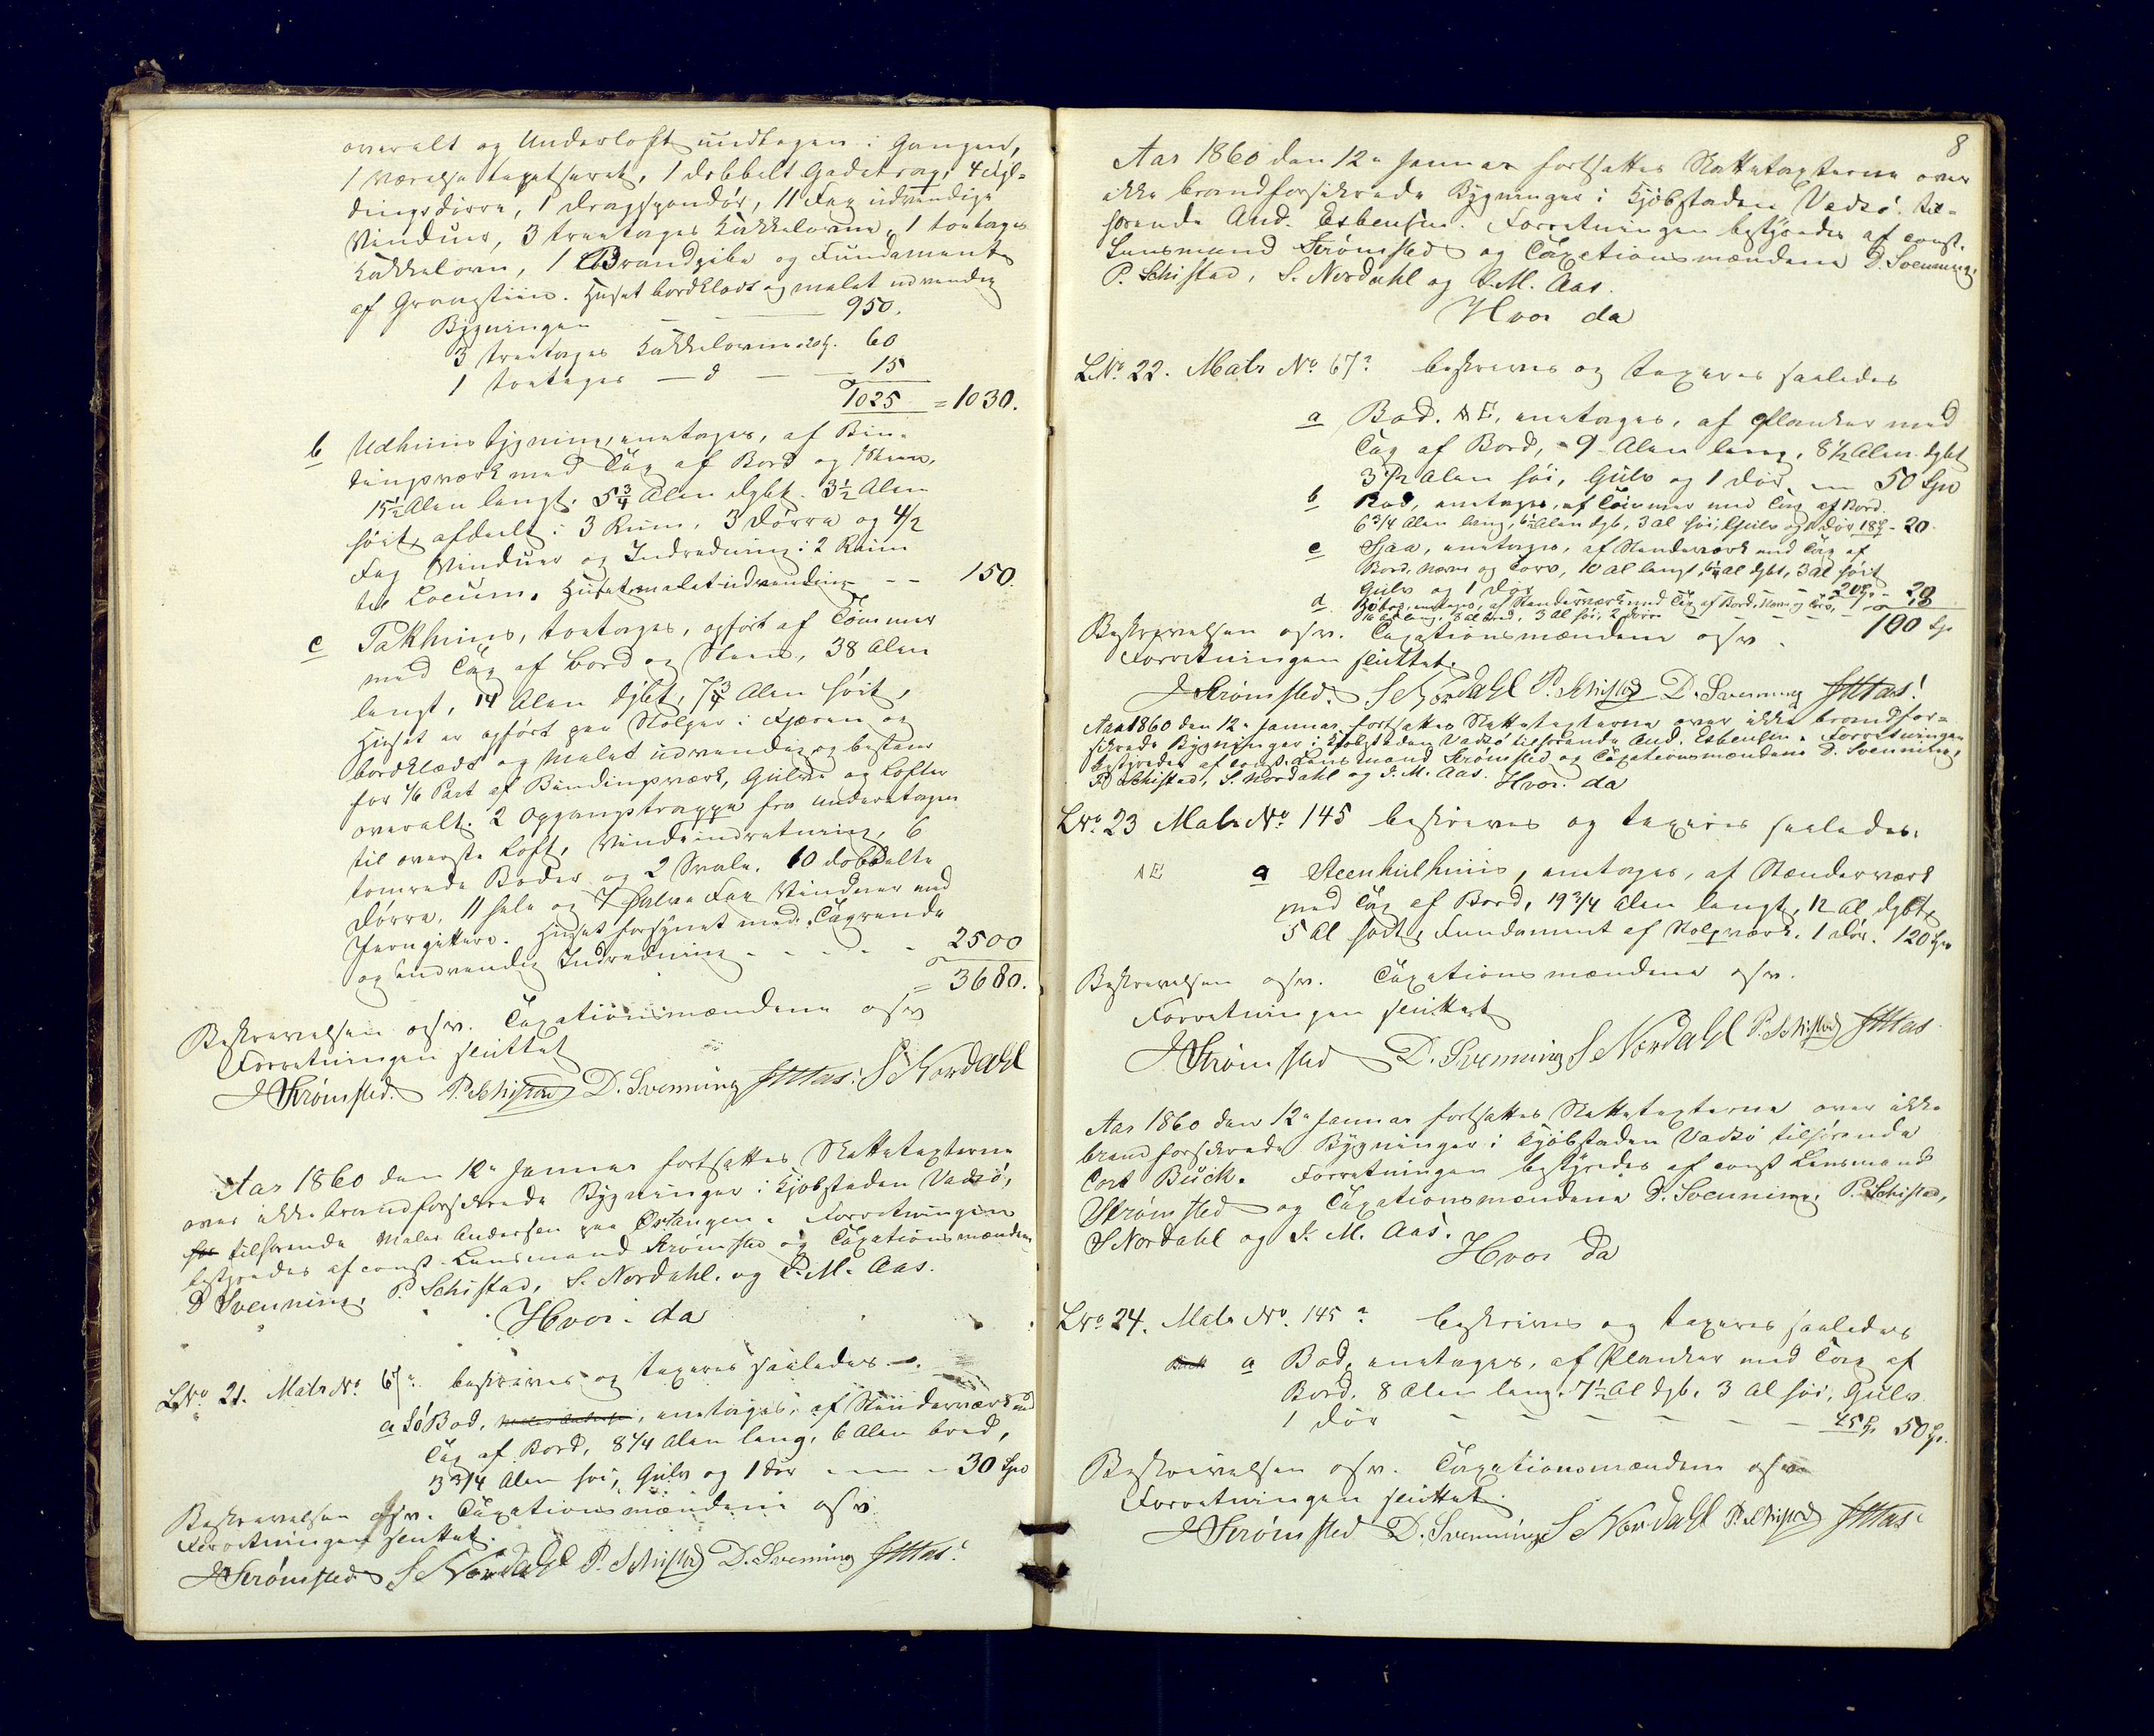 overalt og Underloft undtagen i Gangen,
1 Værelse tapetseret, 1 dobbelt Gadetrap, 4 Fyl-
dingsdørre, 1 Dragspondør, 11 Fag udvendige
Vinduer, 3 treetages Kakkelovne, 1 toetages
Kakkelovn, 1 Brandpibe og Fundament
af Graasteen. Huset bordklædt og malet udvendig
Bygningen 950.
3 treetages Kakkelovne 60
1 toetages — d — 15
1025 = 1030.
b Udhuusbygning, eenetages, af Bin-
dingsværk med Tag af Bord og Steen,
15½ Alen langt, 5¾ Alen dybt, 3½ Alen
høit, afdeelt i 3 Rum, 3 Dørre og 4/2
Fag Vinduer og Indredning i 2 Rum
til Locum. Huset malet udvendig - - 150.
c Pakhuus, toetages, opført af Tømmer
med Tag af Bord og Steen, 38 Alen
langt, 14 Alen dybt, 7¾ Alen høit,
Huset er opført paa Stolper i Fjæren og
bordklædt og malet udvendig og bestaar
for 1/6 Part af Bindingsværk, Gulve og Lofter
overalt. 2 Opgangstrapper fra underetagen
til øverste Loft, Vindeindretning, 6
tømrede Boder og 2 Svale. 10 dobbelte
Dørre, 11 hele og 7 halve Fag Vinduer med
Jerngittere. Huset forsynet med Tagrende
og indvendig Indredning - - - - - 2500
= 3680.
Beskrivelsen osv. Taxationsmændene osv
Forretningen sluttet
J Strømsted. P. Schistad D. Svenning JMAas. S Nordahl
Aar 1860 den 12e Januar fortsattes Skattetaxterne
over ikke brandforsikrede Bygninger i Kjøbstaden Vadsø,
tilhørende Maler Andersen paa Ørtangen. Forretningen
bestyredes af const. Lensmand Strømsted og Taxationsmændene
D Svenning, P. Schistad, S. Nordahl. og J. M. Aas.
Hvor da
LNo 21. Matr No 67a. beskrives og taxeres saaledes —.
a SøBod, eenetages, af Stænderværk med
Tag af Bord, 8¼ Alen lang, 6 Alen bred,
3¾ Alen høi, Gulv og 1 Dør - - - 30 Spd
Beskrivelsen osv. Taxationsmændene osv
Forretningen sluttet.
J Strømsted S Nordahl P. Schistad D. Svenning JMAas.
8
Aar 1860 den 12e Januar fortsattes Skattetaxterne over
ikke brandforsikrede Bygninger i Kjøbstaden Vadsø til-
hørende And. Esbensen. Forretningen bestyredes af const.
Lensmand Strømsted og Taxationsmændene D. Svenning,
P. Schistad, S. Nordahl og J. M. Aas.
Hvor da
LNo 22. Matr No 67a beskrives og taxeres saaledes
a Bod. AE, eenetages, af Planker med
Tag af Bord, 9 Alen lang, 8½ Alen dybt
3½ Alen høi, Gulv og 1 Dør — 50 Spd
b Bod, eenetages, af Tømmer med Tag af Bord.
6¾ Alen lang, 6½ Alen dyb, 3 Al høi, Gulv og 1 Dør 18 - 20
c Sjaa, eenetages, af Stenderværk med Tag af
Bord, Næver og Torv, 10 Al langt, 6¼ Al dybt, 3 Al høit
Gulv og 1 Dør 20 - 20
d eenetages, af Stenderværk med Tag af Bord, Næver og Torv,
Al lang, 8 Al bred, 3 Al høi, 2 Dørre - - - 10
Beskrivelsen osv. Taxationsmændene osv. 100 Sp
Forretningen sluttet.
J Strømsted. S Nordahl P. Schistad D. Svenning JMAas.
Aar 1860 den 12e Januar fortsattes Skattetaxterne over ikke brandfor-
sikrede Bygninger i Kjøbstaden Vadsø tilhørende And. Esbensen. Forretningen
bestyredes af const. Lensmand Strømsted og Taxationsmændene D. Svenning,
P Schistad, S. Nordahl og J. M. Aas. Hvor da
LNo 23 Matr No 145 beskrives og taxeres saaledes.
AE a Steenkulhuus, eenetages, af Stænderværk
med Tag af Bord, 19¾ Alen langt, 12 Al dybt,
5 Al høit, Fundament af Stolpværk. 1 Dør. 120 Spd
Beskrivelsen osv. Taxationsmændene osv.
Forretningen sluttet
J Strømsted D. Svenning S Nordahl P. Schistad JMAas
Aar 1860 den 12e Januar fortsattes Skattetaxterne over ikke
brandforsikrede Bygninger i Kjøbstaden Vadsø tilhørende
Cort Buck. Forretningen bestyredes af const Lensmand
Strømsted og Taxationsmændene D. Svenning, P. Schistad,
S Nordahl og J. M. Aas.
Hvor da
LNo 24. Matr No. 145a beskrives og taxeres saaledes
a Bod, eenetages, af Planker med Tag af
Bord, 8 Alen lang, 7½ Al dyb, 3 Al høi, Gulv
1 Dør - - - - - - 45 50 Sp.
Beskrivelsen osv. Taxationsmændene osv
Forretningen sluttet.
J Strømsted D. Svenning S Nordahl P. Schistad JMAas